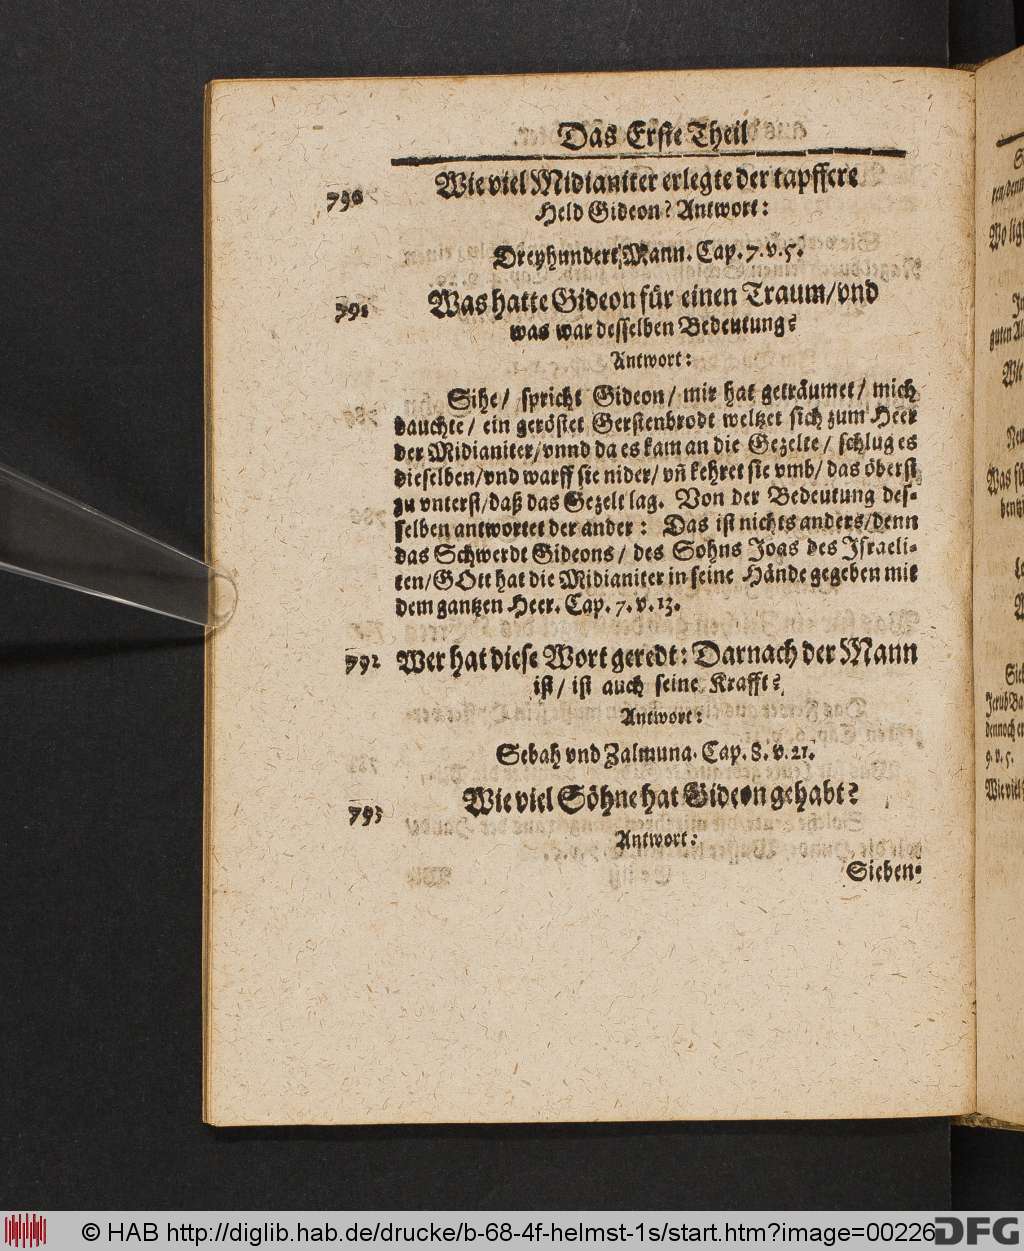 Das Erste Theil
790 Wie viel Midianiter erlegte der tapffere
Held Gideon? Antwort:
Dreyhundert Mann. Cap. 7. v. 5.
791 Was hatte Gideon für einen Traum/vnd
was war desselben Bedeutung?
Antwort:
Sihe/ spricht Gideon/ mir hat geträumet/ mich
dauchte/ ein geröstet Gerstenbrodt weltzet sich zum Heer
der Midianiter/vnnd da es kam an die Gezelte/ schlug es
dieselben/vnd warff sie nider/ vñ kehret sie vmb/ das öberst
zu vnterst/daß das Gezelt lag. Von der Bedeutung des-
selben antwortet der ander: Das ist nichts anders/denn
das Schwerdt Gideons/ des Sohns Joas des Jsraeli-
ten/GOtt hat die Midianiter in seine Hände gegeben mit
dem gantzen Heer. Cap. 7. v. 13.
792 Wer hat diese Wort geredt: Darnach der Mann
ist/ ist auch seine Krafft?
Antwort:
Sebah vnd Zalmuna. Cap. 8. v. 21.
793 Wie viel Söhne hat Gideon gehabt?
Antwort:
Sieben-
guten
Wie
Was
9. v. 5.
Wie viel
© HAB http://diglib.hab.de/drucke/b-68-4f-helmst-1s/start.htm?image=00226
DFG